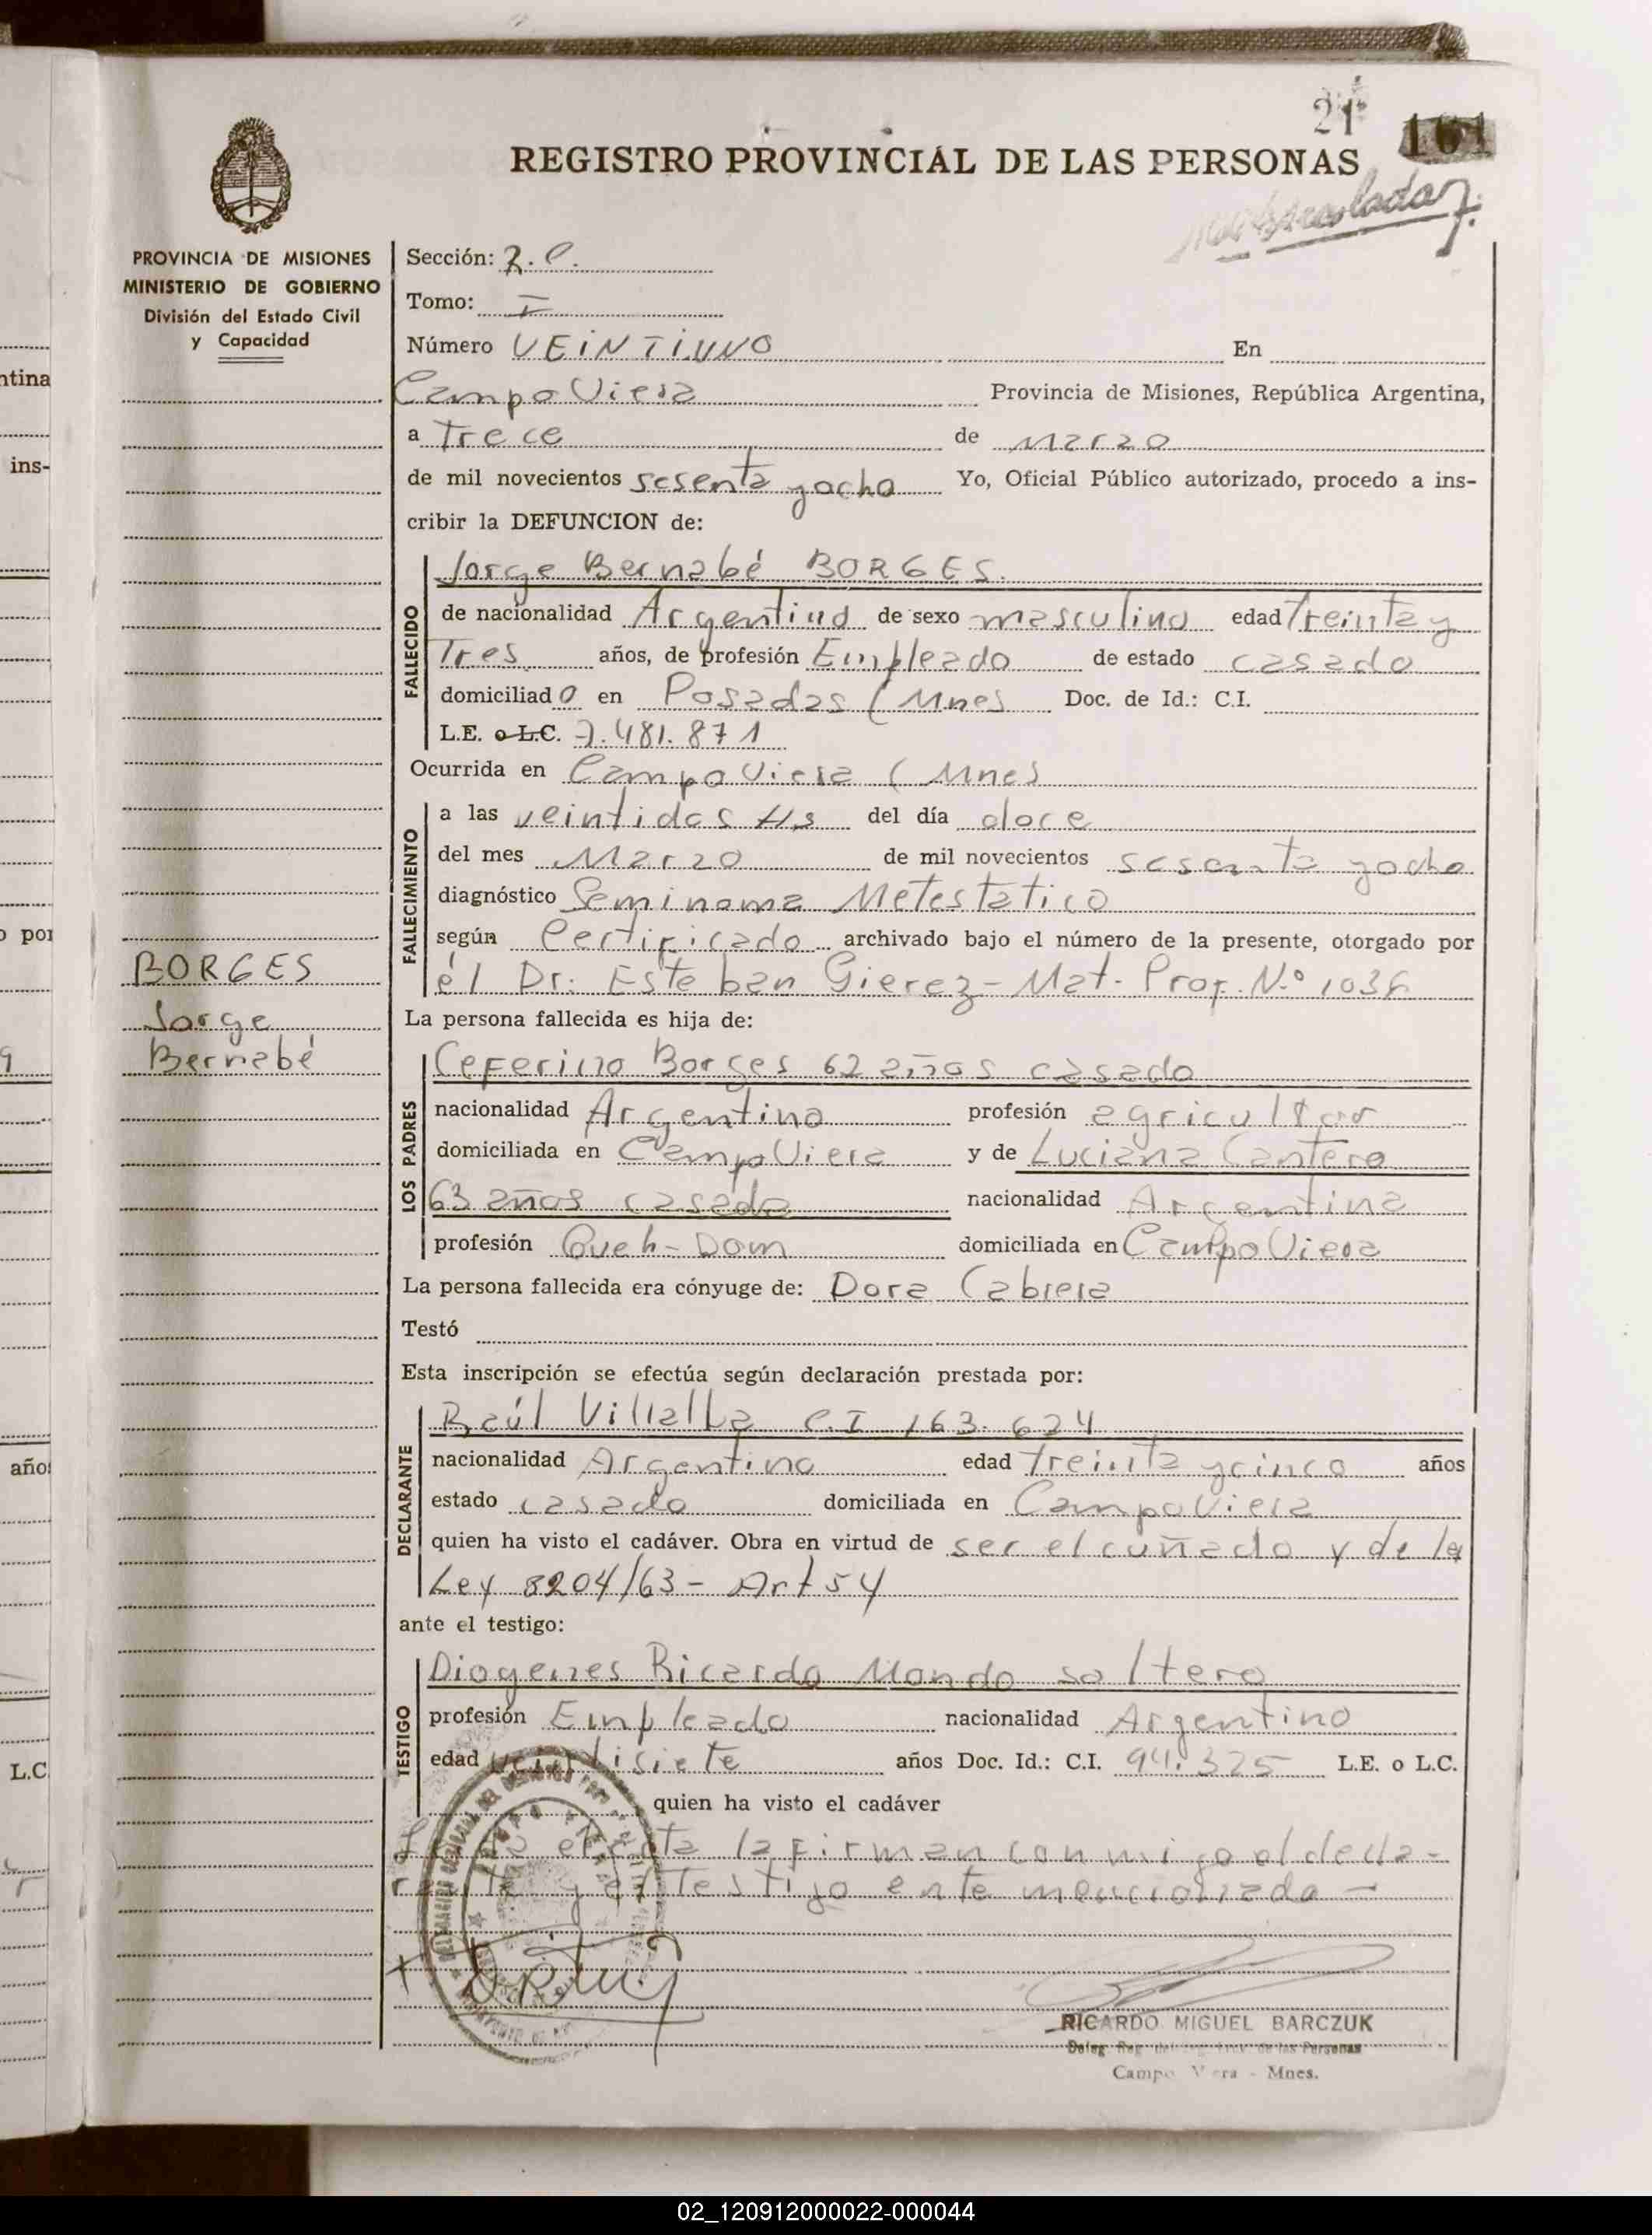 21
161
REGISTRO PROVINCIAL DE LAS PERSONAS
PROVINCIA DE MISIONES
MINISTERIO DE GOBIERNO
División del Estado Civil
y Capacidad
Sección: 2.ª
Tomo: I
Número VEINTIUNO En
Campo Viera Provincia de Misiones, República Argentina,
a Trece de Marzo
de mil novecientos sesenta y ocho Yo, Oficial Público autorizado, procedo a ins-
cribir la DEFUNCION de:
FALLECIDO
Jorge Bernabé BORGES.
de nacionalidad Argentino de sexo masculino edad Treinta y
Tres años, de profesión Empleado de estado casado
domiciliado en Posadas (Mnes Doc. de Id.: C.I.
L.E. o L.C. 7.481.871
Ocurrida en Campo Viera (Mnes)
FALLECIMIENTO
a las veintidos Hs del día doce
del mes Marzo de mil novecientos sesenta y ocho
diagnóstico Seminoma Metastatico
según Certificado archivado bajo el número de la presente, otorgado por
él Dr: Esteban Gierez - Mat. Prof. N.º
BORGES
Jorge
Bernabé
La persona fallecida es hija de:
LOS PADRES
Ceferino Borges 62 años casado
nacionalidad Argentino profesión agricultor
domiciliada en Campo Viera y de Luciana Cantero
63 años casada nacionalidad Argentina
profesión Queh-Dom domiciliada en Campo Viera
La persona fallecida era cónyuge de: Dora Cabrera
Testó
Esta inscripción se efectúa según declaración prestada por:
DECLARANTE
Raúl Villalba C.I 163.624
nacionalidad Argentino edad Treinta y cinco años
estado casado domiciliada en Campo Viera
quien ha visto el cadáver. Obra en virtud de ser el cuñado y de la
Ley 8204/63 - Art 54
ante el testigo:
TESTIGO
Diogenes Ricardo Mondo soltero
profesión Empleado nacionalidad Argentino
edad veintisiete años Doc. Id.: C.I. 94.325 L.E. o L.C.
quien ha visto el cadáver
la firman conmigo el decla-
rante y el Testigo ente mencionado -
RICARDO MIGUEL BARCZUK
Deleg. Reg. del Reg. Prov. de las Personas
Campo Viera - Mnes.
ntina
ins-
o por
años
L.C
02_120912000022-000044